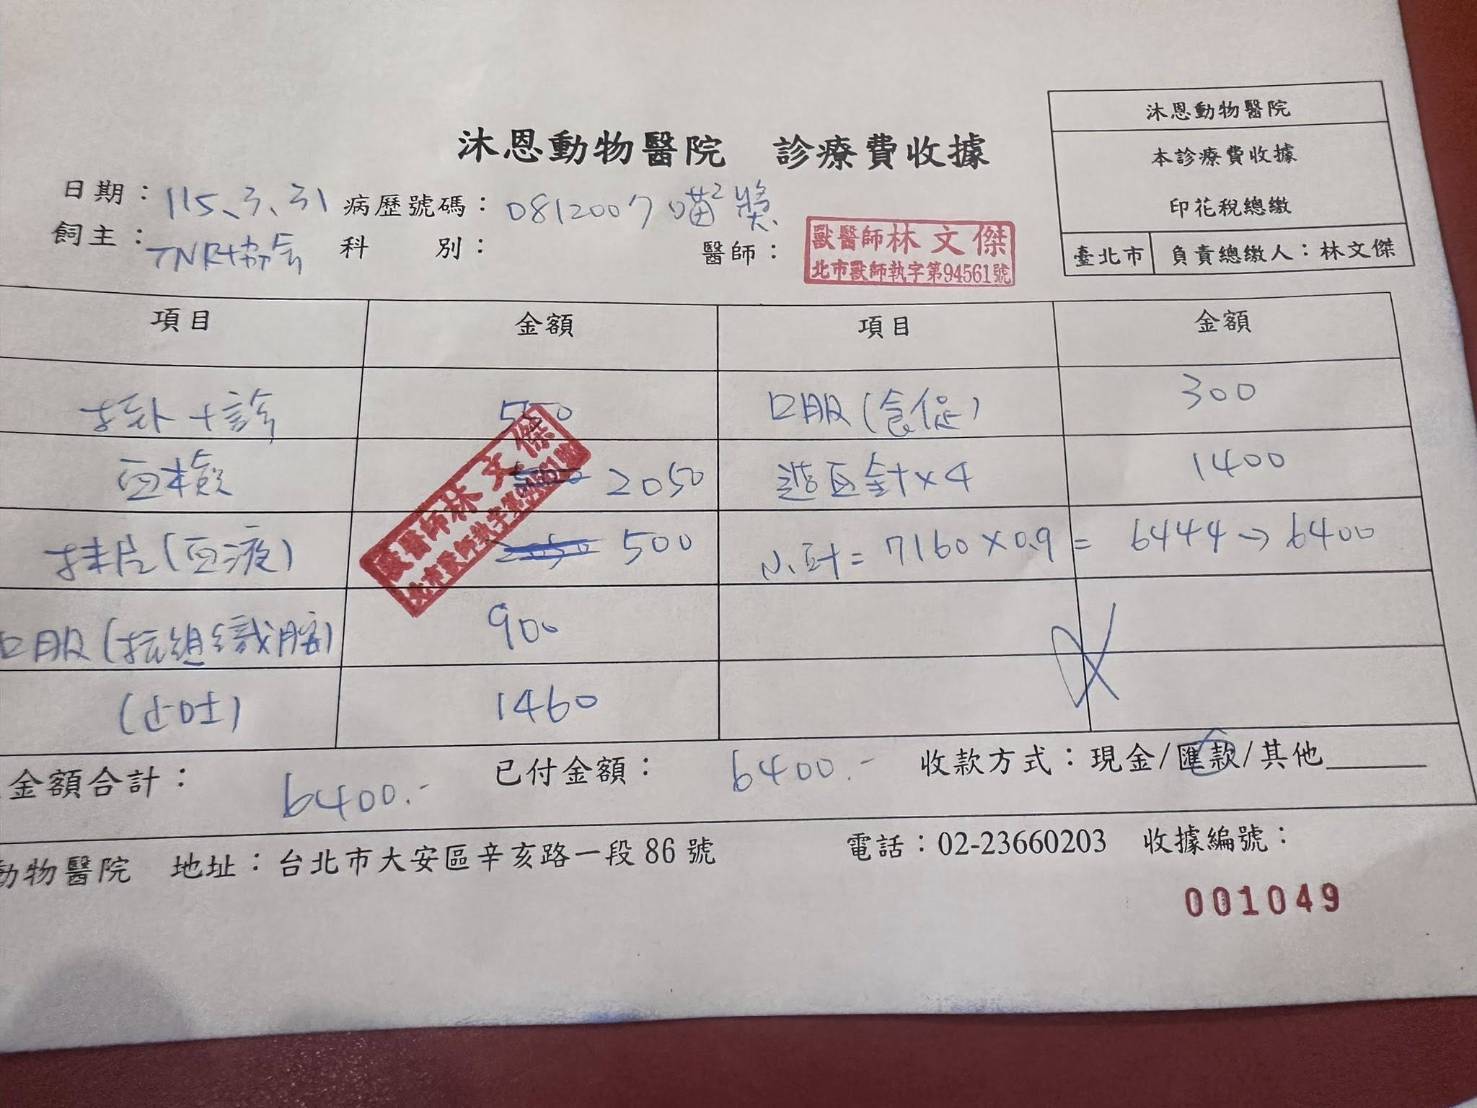 沐恩動物醫院 診療費收據
沐恩動物醫院
本診療費收據
印花稅總繳
臺北市 負責總繳人：林文傑
日期：115、3、31 病歷號碼：0812007 喵²獎
飼主：TNR協會 科 別： 醫師：
獸醫師林文傑
北市獸師執字第94561號
項目 金額 項目 金額
掛+診 550 口服(食促) 300
血檢 2050 造血針x4 1400
抹片(血液) 500 小計=7160x0.9= 6444→6400
獸醫師林文傑
口服(抗組織胺) 900
(止吐) 1460
金額合計： 6400.- 已付金額： 6400.- 收款方式：現金/匯款/其他
動物醫院 地址：台北市大安區辛亥路一段86號 電話：02-23660203 收據編號：
001049